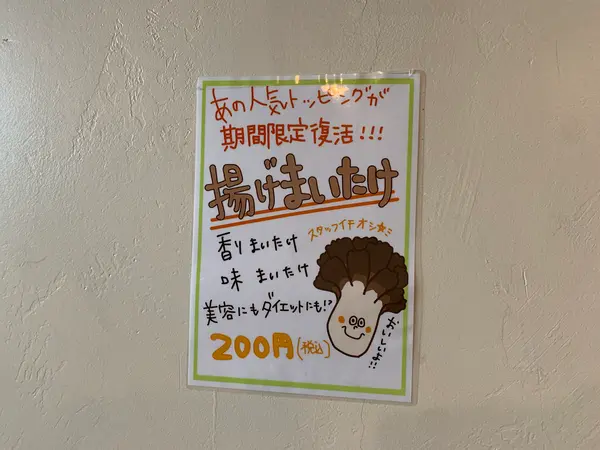 あの人気トッピングが
期間限定復活!!!
揚げまいたけ
スタッフイチオシ☆ミ
香りまいたけ
味 まいたけ
美容にもダイエットにも!?
200円(税込)
おいしいよ!!